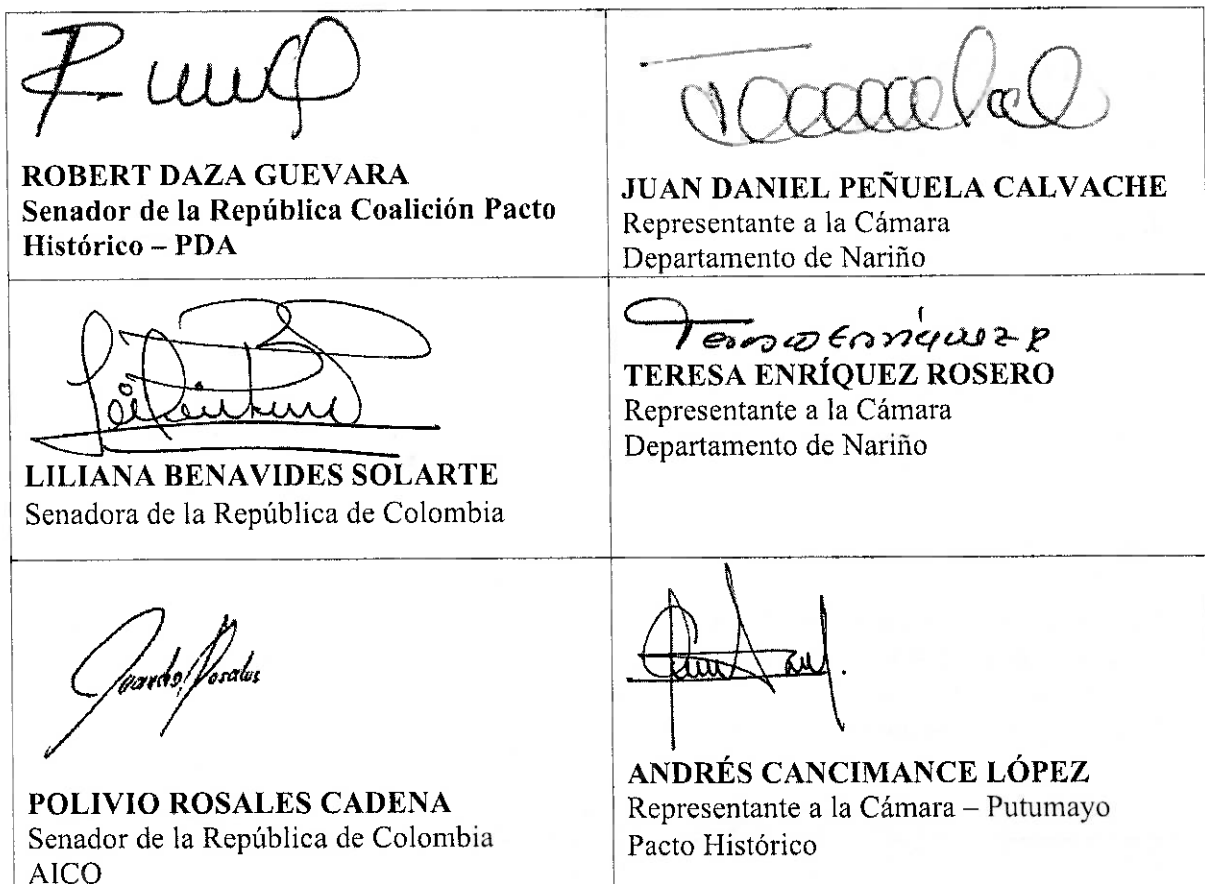 ROBERT DAZA GUEVARA
Senador de la República Coalición Pacto
Histórico – PDA
JUAN DANIEL PEÑUELA CALVACHE
Representante a la Cámara
Departamento de Nariño
LILIANA BENAVIDES SOLARTE
Senadora de la República de Colombia
Teresa Enríquez R
TERESA ENRÍQUEZ ROSERO
Representante a la Cámara
Departamento de Nariño
Rosales
POLIVIO ROSALES CADENA
Senador de la República de Colombia
AICO
ANDRÉS CANCIMANCE LÓPEZ
Representante a la Cámara – Putumayo
Pacto Histórico